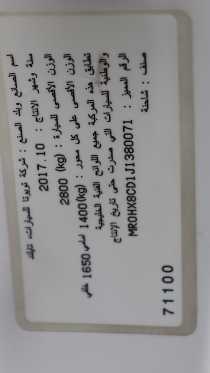 اسم الصانع وبلد الصنع : شركة تويوتا للسيارات، تايلاند
سنة وشهر الإنتاج : 2017.10
الوزن الأقصى للسيارة : 2800 (kg)
الوزن الأقصى على كل محور : 1400(kg) أمامي 1650 خلفي
تطابق هذه المركبة جميع اللوائح الفنية الخليجية
والوطنية للسيارات التي صدرت حتى تاريخ الإنتاج
الرقم المميز : MR0HX8CD1J1380071
صنف : شاحنة
71100